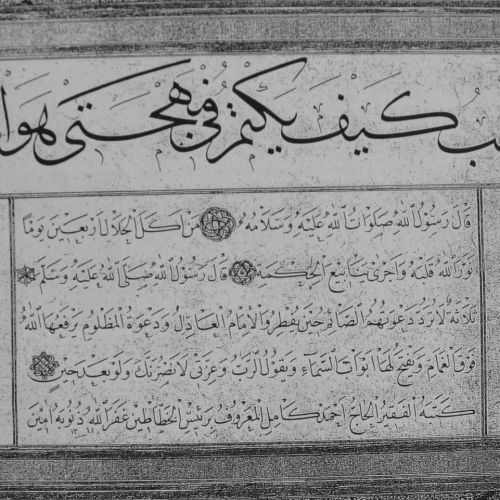 كيف يكتم في مهجتي هوا
قال رسول الله صلوات الله عليه وسلامه من اكل الحلال اربعين يوما
نور الله قلبه واجرى ينابيع الحكمة قال رسول الله صلى الله عليه وسلم
ثلاثة لا ترد دعوتهم الصائم حين يفطر والامام العادل ودعوة المظلوم يرفعها الله
فوق الغمام ويفتح لها ابواب السماء ويقول الرب وعزتي لانصرنك ولو بعد حين
كتبه الفقير الحاج احمد كامل المعروف برئيس الخطاطين غفر الله ذنوبه امين